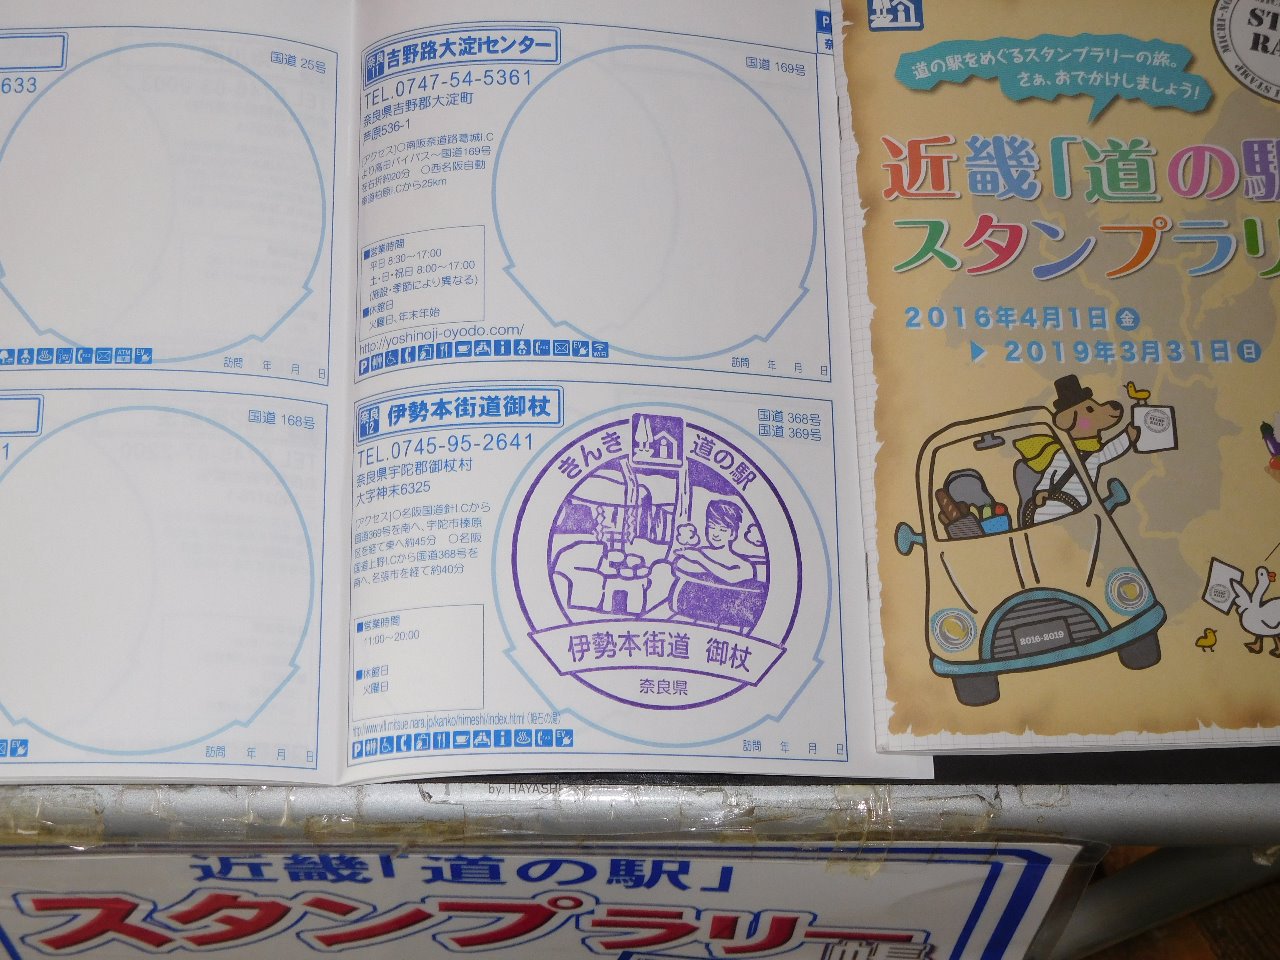 633
国道 25号
訪問 年 月 日
1
国道 168号
訪問 年 月 日
奈良
11
吉野路大淀iセンター
国道 169号
TEL.0747-54-5361
奈良県吉野郡大淀町
芦原536-1
[アクセス]〇南阪奈道路葛城I.C
より高田バイパス〜国道169号
を右折約20分 〇西名阪自動
車道柏原I.Cから25km
■営業時間
平日 8:30〜17:00
土・日・祝日 8:00〜17:00
(施設・季節により異なる)
■休館日
火曜日、年末年始
http://yoshinoji-oyodo.com/
訪問 年 月 日
奈良
12
伊勢本街道御杖
国道 368号
国道 369号
TEL.0745-95-2641
奈良県宇陀郡御杖村
大字神末6325
[アクセス]〇名阪国道針I.Cから
国道369号を南へ、宇陀市榛原
区を経て東へ約45分 〇名阪
国道上野I.Cから国道368号を
南へ、名張市を経て約40分
■営業時間
11:00〜20:00
■休館日
火曜日
http://www.vill.mitsue.nara.jp/kanko/himeshi/index.html (姫石の湯)
訪問 年 月 日
きんき 道の駅
伊勢本街道 御杖
奈良県
道の駅をめぐるスタンプラリーの旅。
さぁ、おでかけしましょう!
近畿「道の駅
スタンプラリ
2016年4月1日金
2019年3月31日日
2016-2019
by HAYASHI
近畿「道の駅」
スタンプラリー